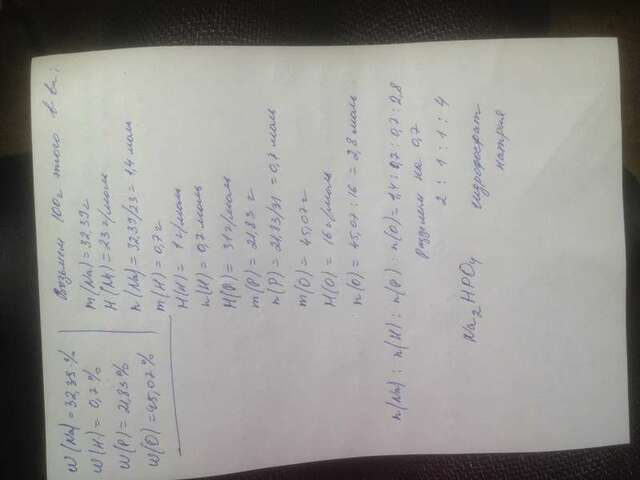 w(Na) = 32,39 %
w(H) = 0,7 %
w(P) = 21,83 %
w(O) = 45,07 %
Возьмем 100г этого в-ва:
m(Na) = 32,39г
M(Na) = 23 г/моль
n(Na) = 32,39/23 = 1,4 моль
m(H) = 0,7 г
M(H) = 1 г/моль
n(H) = 0,7 моль
M(P) = 31 г/моль
m(P) = 21,83 г
n(P) = 21,83/31 = 0,7 моль
m(O) = 45,07 г
M(O) = 16 г/моль
n(O) = 45,07 : 16 = 2,8 моль
n(Na) : n(H) : n(P) : n(O) = 1,4 : 0,7 : 0,7 : 2,8
Разделем на 0,7
2 : 1 : 1 : 4
Na2HPO4
гидрофосфат
натрия